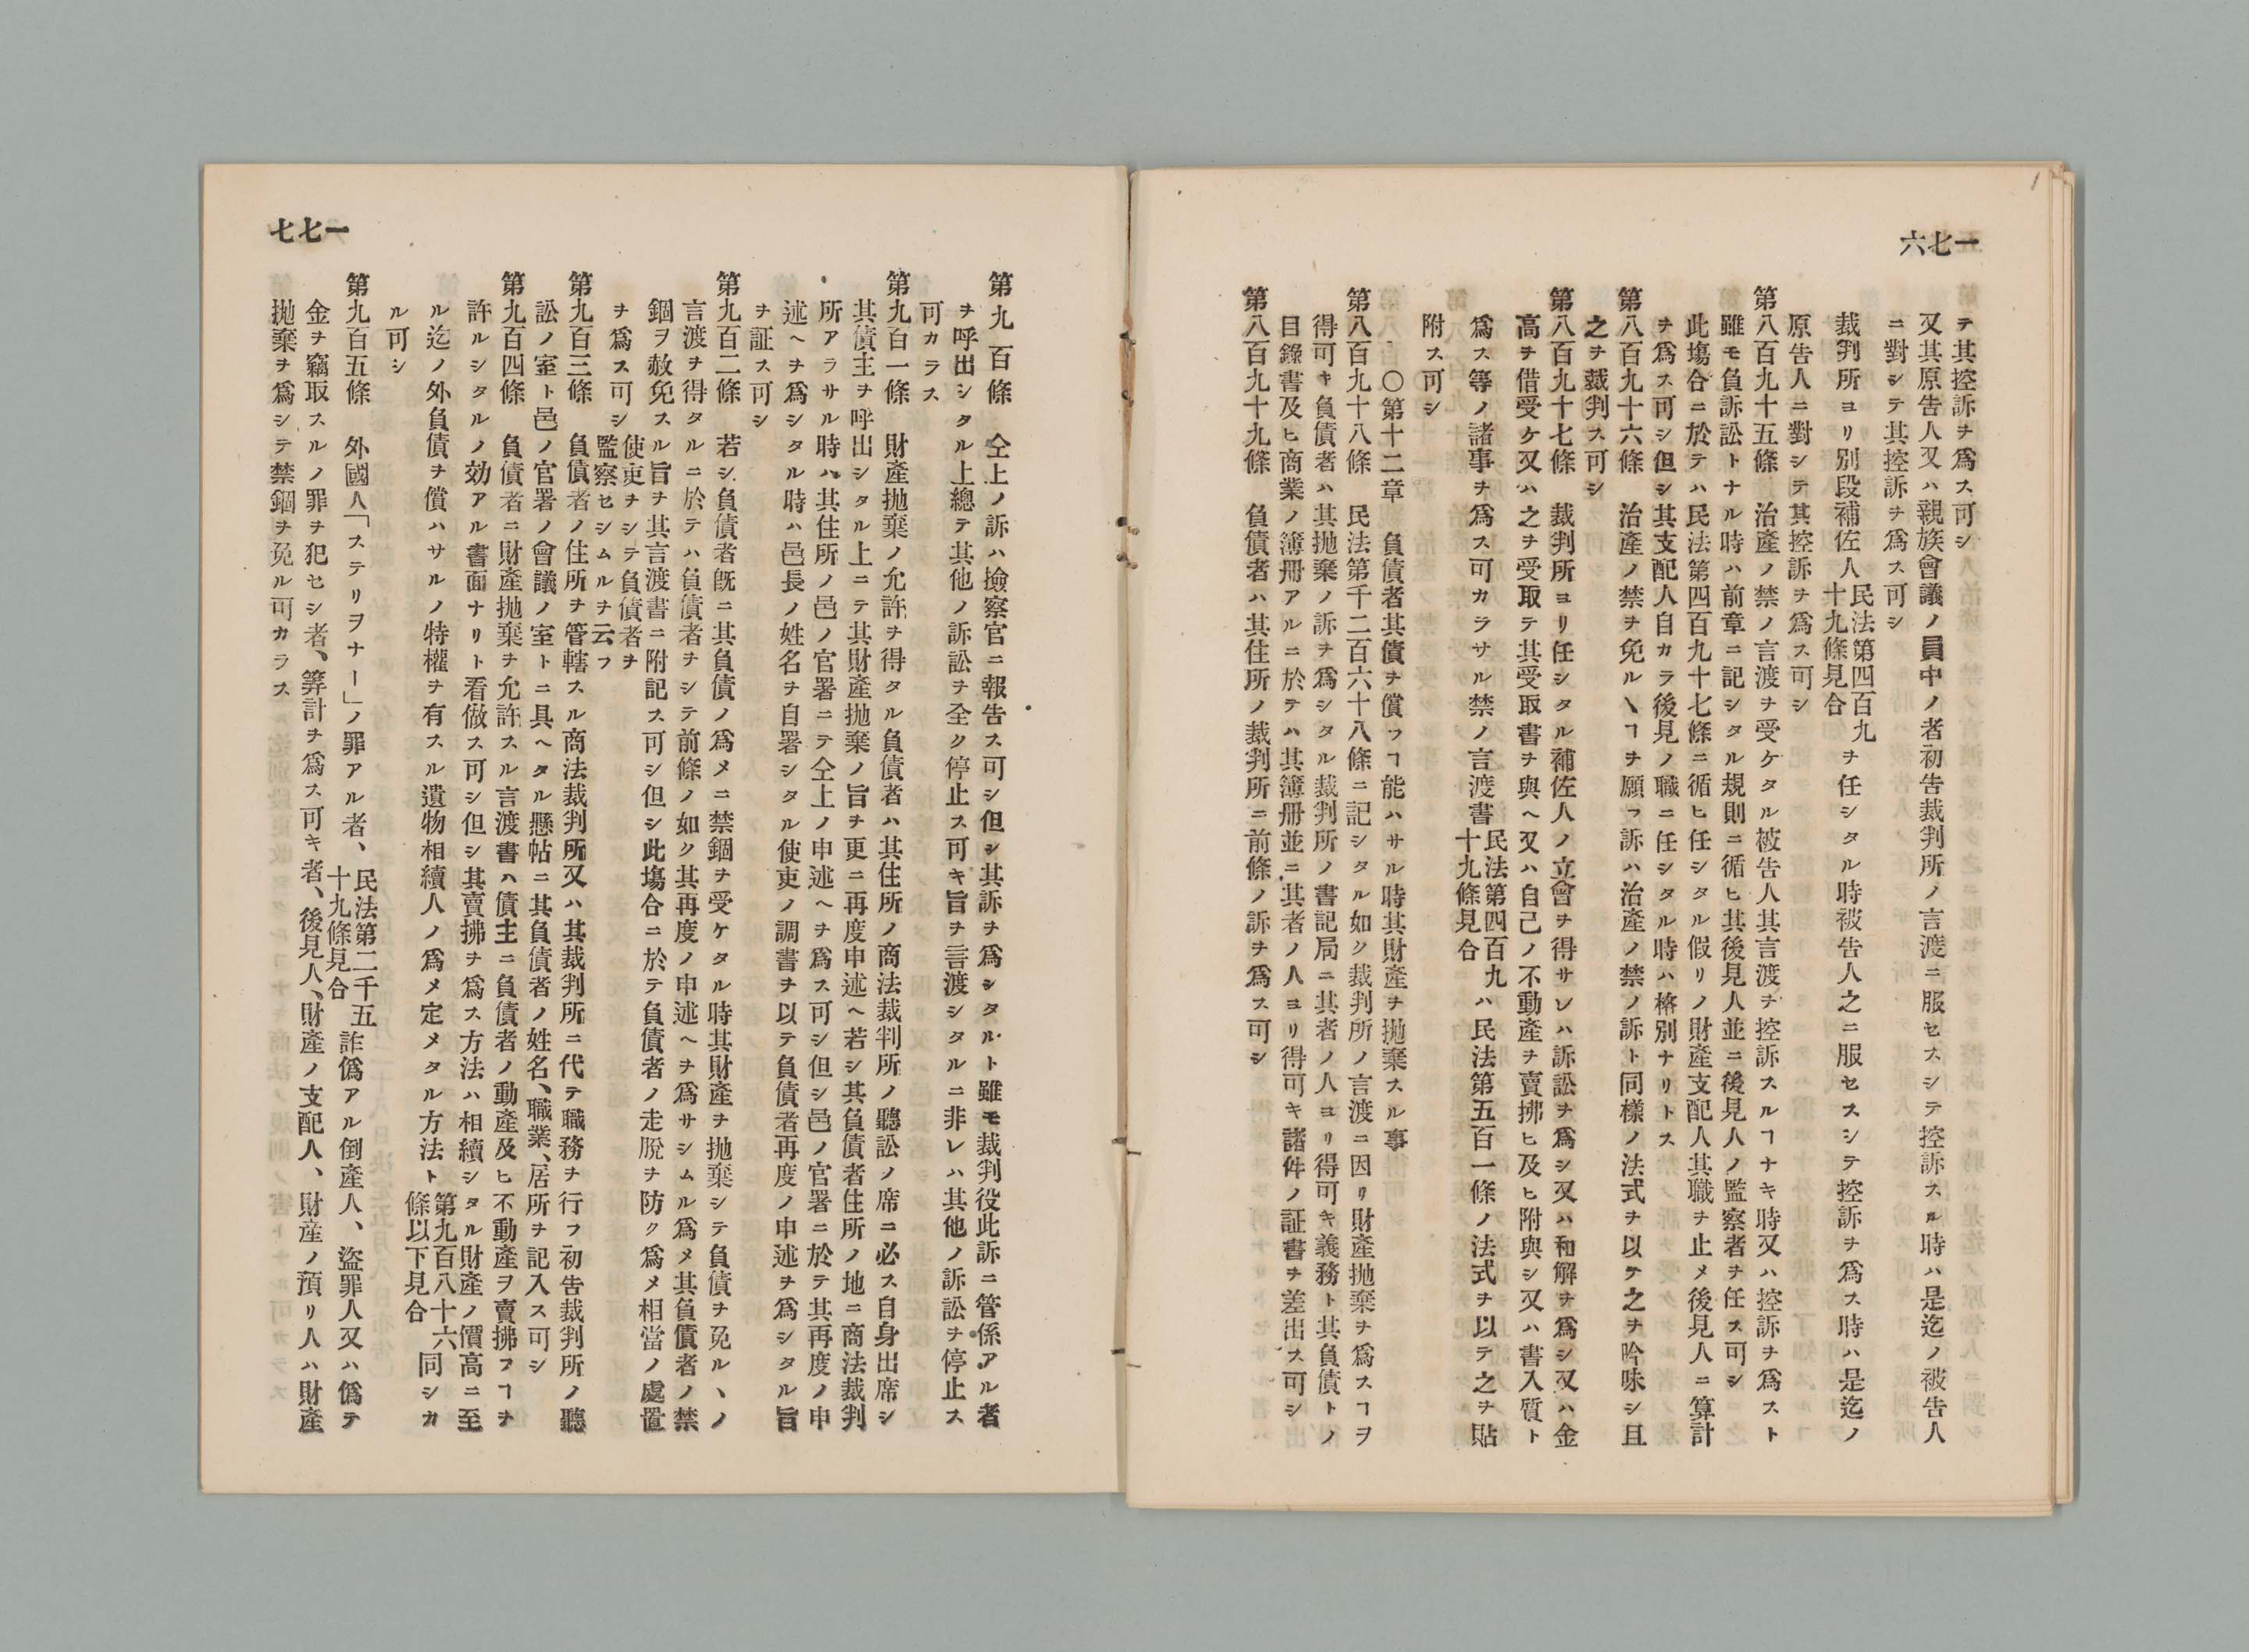 一七六
テ其控訴ヲ爲ス可シ
又其原告人又ハ親族會議ノ員中ノ者初告裁判所ノ言渡ニ服セスシテ控訴スル時ハ是迄ノ被告人
ニ對シテ其控訴ヲ爲ス可シ
裁判所ヨリ別段補佐人民法第四百九十九條見合ヲ任シタル時被告人之ニ服セスシテ控訴ヲ爲ス時ハ是迄ノ
原告人ニ對シテ其控訴ヲ爲ス可シ
第八百九十五條 治產ノ禁ノ言渡ヲ受ケタル被告人其言渡ヲ控訴スルヿナキ時又ハ控訴ヲ爲スト
雖モ負訴訟トナル時ハ前章ニ記シタル規則ニ循ヒ其後見人並ニ後見人ノ監察者ヲ任ス可シ
此塲合ニ於テハ民法第四百九十七條ニ循ヒ任シタル假リノ財產支配人其職ヲ止メ後見人ニ算計
ヲ爲ス可シ但シ其支配人自カラ後見ノ職ニ任シタル時ハ格別ナリトス
第八百九十六條 治產ノ禁ヲ免ルヽヿヲ願フ訴ハ治產ノ禁ノ訴ト同樣ノ法式ヲ以テ之ヲ吟味シ且
之ヲ裁判ス可シ
第八百九十七條 裁判所ヨリ任シタル補佐人ノ立會ヲ得サレハ訴訟ヲ爲シ又ハ和解ヲ爲シ又ハ金
高ヲ借受ケ又ハ之ヲ受取テ其受取書ヲ與ヘ又ハ自己ノ不動產ヲ賣拂ヒ及ヒ附與シ又ハ書入質ト
爲ス等ノ諸事ヲ爲ス可カラサル禁ノ言渡書民法第四百九十九條見合ハ民法第五百一條ノ法式ヲ以テ之ヲ貼
附ス可シ
〇第十二章 負債者其債ヲ償フヿ能ハサル時其財產ヲ抛棄スル事
第八百九十八條 民法第千二百六十八條ニ記シタル如ク裁判所ノ言渡ニ因リ財產抛棄ヲ爲スヿヲ
得可キ負債者ハ其抛棄ノ訴ヲ爲シタル裁判所ノ書記局ニ其者ノ人ヨリ得可キ義務ト其負債トノ
目錄書及ヒ商業ノ簿册アルニ於テハ其簿册並ニ其者ノ人ヨリ得可キ諸件ノ証書ヲ差出ス可シ
第八百九十九條 負債者ハ其住所ノ裁判所ニ前條ノ訴ヲ爲ス可シ
一七七
第九百條 仝上ノ訴ハ撿察官ニ報告ス可シ但シ其訴ヲ爲シタルト雖モ裁判役此訴ニ管係アル者
ヲ呼出シタル上總テ其他ノ訴訟ヲ全ク停止ス可キ旨ヲ言渡シタルニ非レハ其他ノ訴訟ヲ停止ス
可カラス
第九百一條 財產抛棄ノ允許ヲ得タル負債者ハ其住所ノ商法裁判所ノ聽訟ノ席ニ必ス自身出席シ
其債主ヲ呼出シタル上ニテ其財產抛棄ノ旨ヲ更ニ再度申述ヘ若シ其負債者住所ノ地ニ商法裁判
所アラサル時ハ其住所ノ邑ノ官署ニテ仝上ノ申述ヘヲ爲ス可シ但シ邑ノ官署ニ於テ其再度ノ申
述ヘヲ爲シタル時ハ邑長ノ姓名ヲ自署シタル使吏ノ調書ヲ以テ負債者再度ノ申述ヲ爲シタル旨
ヲ証ス可シ
第九百二條 若シ負債者旣ニ其負債ノ爲メニ禁錮ヲ受ケタル時其財產ヲ抛棄シテ負債ヲ免ルヽノ
言渡ヲ得タルニ於テハ負債者ヲシテ前條ノ如ク其再度ノ申述ヘヲ爲サシムル爲メ其負債者ノ禁
錮ヲ赦免スル旨ヲ其言渡書ニ附記ス可シ但シ此塲合ニ於テ負債者ノ走脫ヲ防ク爲メ相當ノ處置
ヲ爲ス可シ使吏ヲシテ負債者ヲ監察セシムルヲ云フ
第九百三條 負債者ノ住所ヲ管轄スル商法裁判所又ハ其裁判所ニ代テ職務ヲ行フ初告裁判所ノ聽
訟ノ室ト邑ノ官署ノ會議ノ室トニ具ヘタル懸帖ニ其負債者ノ姓名、職業、居所ヲ記入ス可シ
第九百四條 負債者ニ財產抛棄ヲ允許スル言渡書ハ債主ニ負債者ノ動產及ヒ不動產ヲ賣拂フヿヲ
許ルシタルノ効アル書面ナリト看做ス可シ但シ其賣拂ヲ爲ス方法ハ相續シタル財產ノ價高ニ至
ル迄ノ外負債ヲ償ハサルノ特權ヲ有スル遺物相續人ノ爲メ定メタル方法ト第九百八十六條以下見合同シカ
ル可シ
第九百五條 外國人「ステリヲナー」ノ罪アル者、民法第二千五十九條見合詐僞アル倒產人、盜罪人又ハ僞テ
金ヲ竊取スルノ罪ヲ犯セシ者、筭計ヲ爲ス可キ者、後見人、財產ノ支配人、財産ノ預リ人ハ財產
抛棄ヲ爲シテ禁錮ヲ免ル可カラス